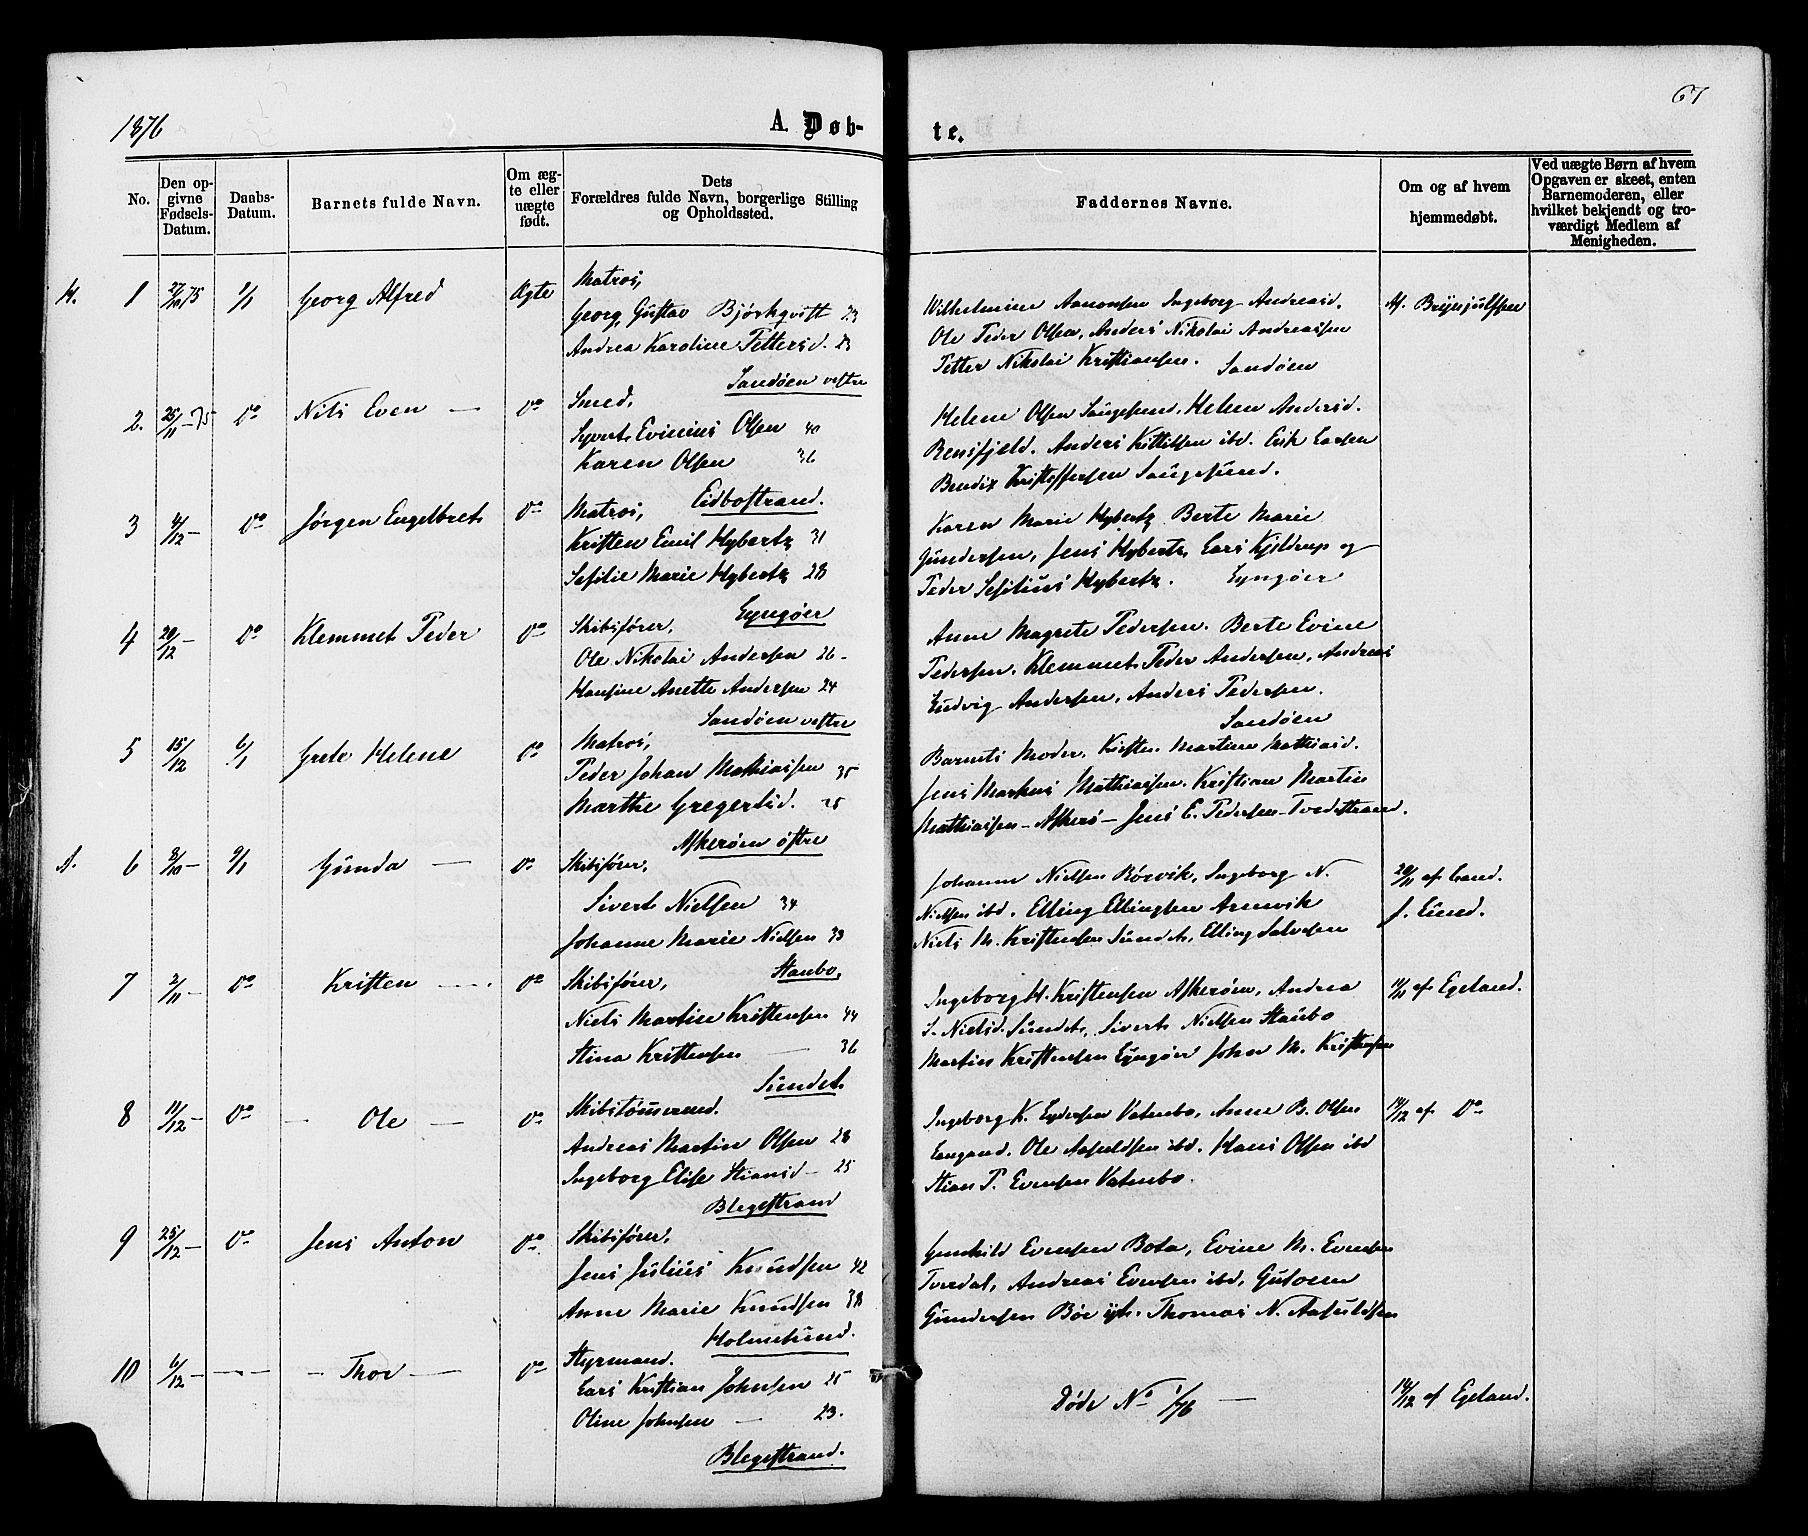 1876
A. Døb-
te.
67
No.
Den op-
givne
Fødsels-
Datum.
Daabs-
Datum.
Barnets fulde Navn.
Om æg-
te eller
uægte
født.
Dets
Forældres fulde Navn, borgerlige Stilling
og Opholdssted.
Faddernes Navne.
Om og af hvem
hjemmedøbt.
Ved uægte Børn af hvem
Opgaven er skeet, enten
Barnemoderen, eller
hvilket bekjendt og tro-
værdigt Medlem af
Menigheden.
H. 1 27/10 75 1/1 Georg Alfred Ægte
Matros,
Georg Gustav Bjørkqvist 23
Andrea Karoline Petersd. 23
Sandøen vestre
Wilhelmine Aanonsen Ingeborg Andreasd.
Ole Peder Olsen, Anders Nikolai Andreassen
Petter Nikolai Kristiansen. Sandøen
Af. Brynjulfsen
2. 25/11 - 75 Do Nils Even - Do
Smed,
Syvert Evinius Olsen 40
Karen Olsen 36
Eidbostrand.
Helene Olsen Saugesund, Helene Andersd.
Rensfjeld. Anders Kittilsen ibd. Erik Larsen
Bendix Kristoffersen Saugesund.
3 4/12 - Do Jørgen Engelbret Do
Matros,
Kristen Emil Hybertz 31
Sesilie Marie Hybertz 28
Lyngøer
Karen Marie Hybertz Berte Marie
Gundersen, Jens Hybertz, Lars Kjeldrup og
Peder Sesilius Hybertz. Lyngøer
4 20/12 - Do Klemmet Peder Do
Skibsfører,
Ole Nikolai Andersen 26 -
Hansine Anette Andersen 24
Sandøen vestre
Anne Magrete Pedersen. Berte Evine
Pedersen. Klemmet Peder Andersen, Andreas
Ludvig Andersen, Anders Pedersen.
Sandøen
5 15/12 6/1 Grete Helene Do
Matros,
Peder Johan Mathiassen 35
Marthe Gregersd. 25
Askerøen østre
Barnets Moder. Kirsten Martine Mathiasd.
Jens Markus Mathiassen. Kristian Martin
Mathiassen - Askerø - Jens E. Pedersen - Tvedestrand.
A. 6 8/10 - 9/1 Gunda - Do
Skibsfører,
Sivert Nielsen 34
Johanne Marie Nielsen 33
Staubo,
Johanne Nielsen Børvik, Ingeborg N.
Nielsen ibd. Elling Ellingsen Arnevik
Niels M. Kristensen Sundet, Elling Salvesen
20/11 af Cand.
J. Lund.
7 2/11 - Do Kristen - Do
Skibsfører,
Niels Martin Kristensen 44
Stina Kristensen - 36
Sundet
Ingeborg H. Kristensen Askerøen, Andrea
S. Nielsd. Sundet, Sivert Nielsen Staubo
Martin Kristensen Lyngøer John M. Kristensen
af Egeland.
8 11/12 - Do - Ole - Do
Skibstømmermd.
Andreas Martin Olsen 28
Ingeborg Elise Stiansd - 25
Blegestrand
Ingeborg K. Vatnebo, Anne B. Olsen
Ole Aasuldsen ibd. Hans Olsen ibd
Stian P. Evensen Vatnebo.
14/12 af Do
9 25/12 - Do Jens Anton Do
Skibsfører,
Jens Julius Knudsen 42
Anne Marie Knudsen 38
Holmesund.
Gunhild Evensen Bota, Evine M. Evensen
Tvedal, Andreas Evensen ibd, Gutorm
Gundersen Thomas N. Aasuldsen
10 6/12 - - - - Thor - Do
Styrmand.
Lars Kristian Johnsen 25
Oline Johnsen - 23.
Blegestrand.
Døde No 1/76 -
14/12 af Egeland.